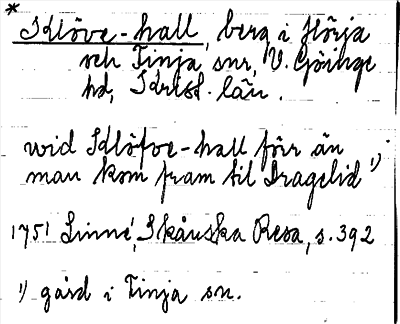 *
Klöve-hall, berg i Hörja
och Finja snr, V. Göinge
hd, Krist. län.
wid Klöfwe-hall förr än
man kom fram til Dragelid 1)
1751 Linné, Skånska Resa, s. 392
1) gård i Finja sn.